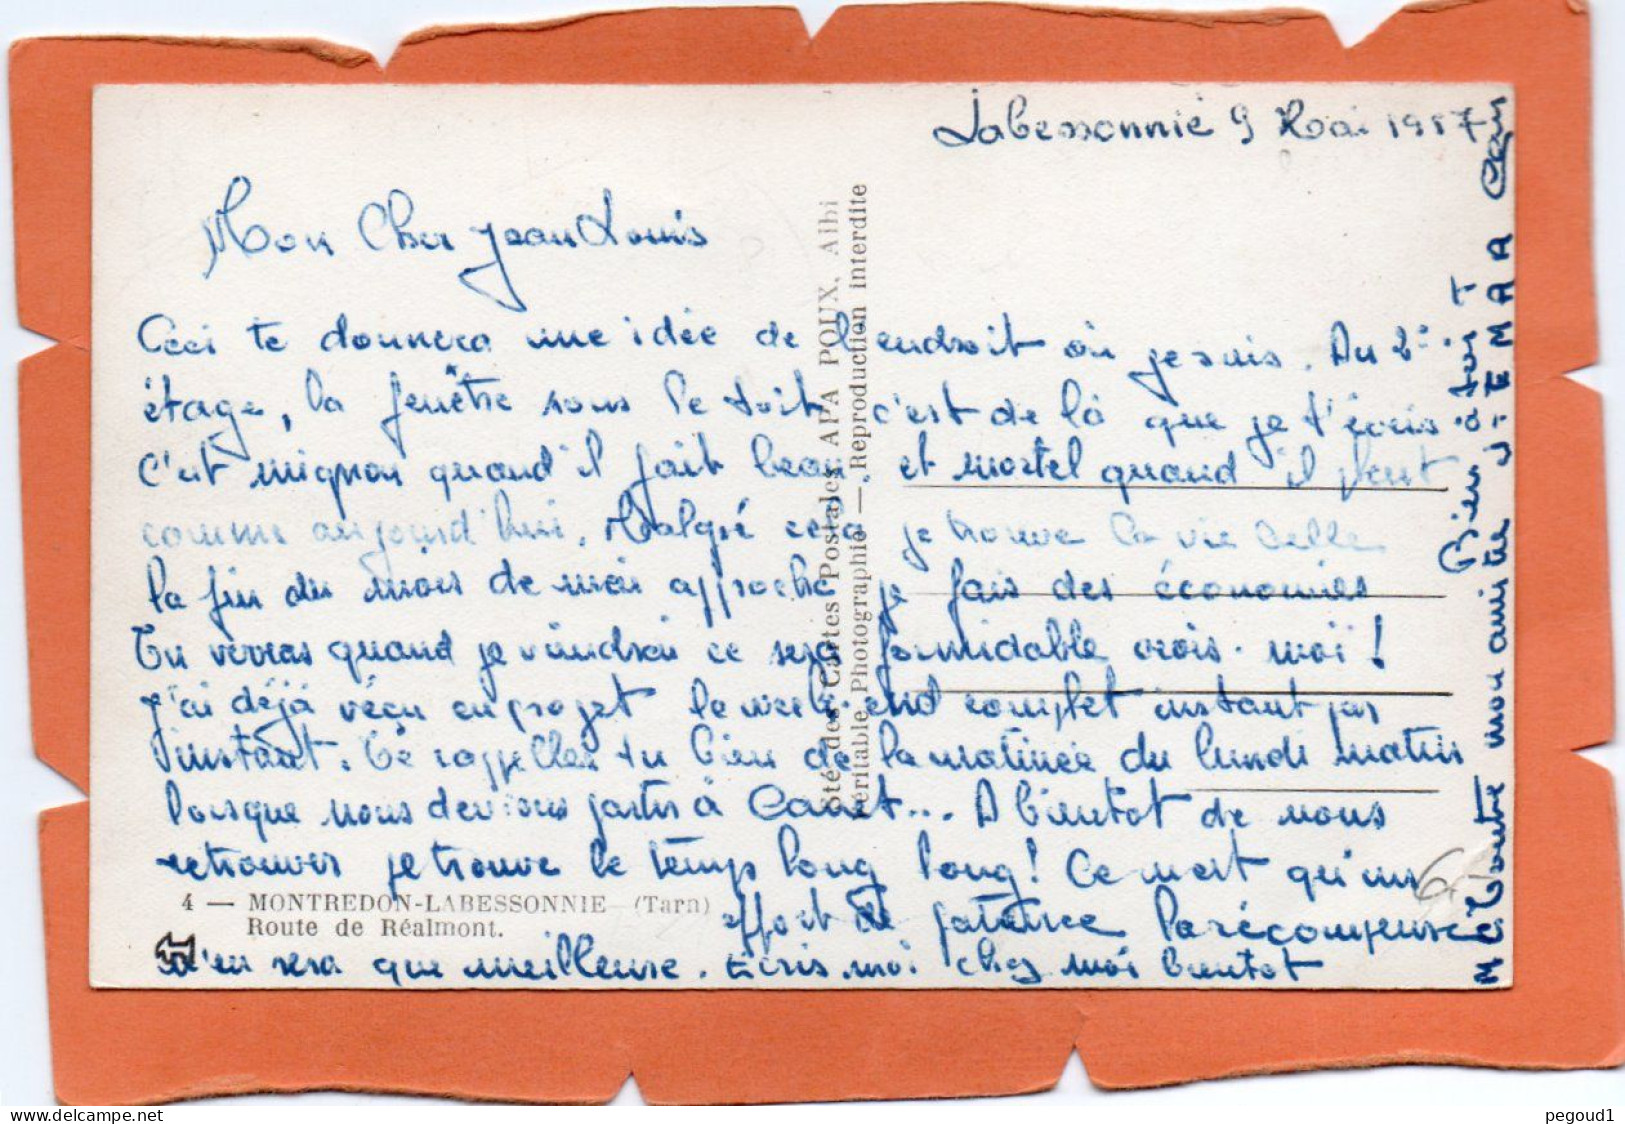 Labessonnié 9 Mai 1957
Mon Cher Jean Louis
Ceci te donnera une idée de l'endroit où je suis. Au 2è
étage, la fenêtre sous le toit c'est de là que je t'écris
C'est mignon quand il fait beau et mortel quand il pleut
comme aujourd'hui. Malgré cela je trouve la vie belle
la fin du mois de mai approche je fais des économies
Tu verras quand je viendrai ce sera formidable crois-moi!
J'ai déjà vécu en projet le week-end complet instant par
instant. Te rappelles tu bien de la matinée du lundi matin
lorsque nous devions partir à Canet... A bientot de nous
retrouver je trouve le temps long long! Ce n'est qu'un
effort de patience La récompense
n'en sera que meilleure. Ecris moi chez moi bientot
Bien à toi T
toute mon amitié
4 — MONTREDON-LABESSONNIE (Tarn)
Route de Réalmont.
Sté des Cartes Postales APA POUX, Albi
Véritable Photographie — Reproduction interdite
6
pegoud1
www.delcampe.net